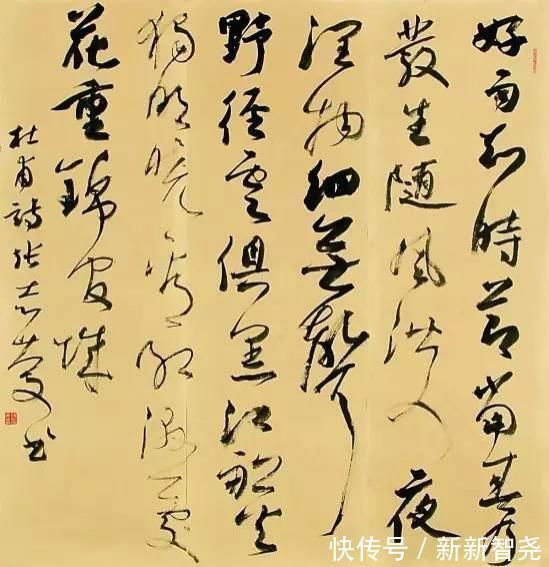 好雨知時節當春乃
發生隨風潛入夜
潤物細無聲
野徑雲俱黑江船火
獨明曉看紅濕處
花重錦官城
杜甫詩張志慶书
快传号 / 新新智尧